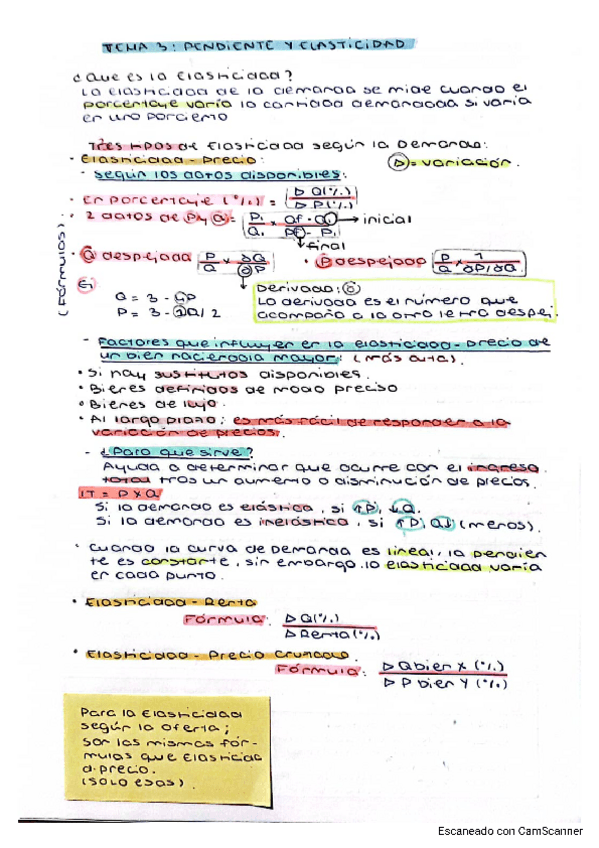 TEMA 3: PENDIENTE Y ELASTICIDAD
¿Que es la Elasticidad?
La elasticidad de la demanda se mide cuando el
porcentaje varía la cantidad demandada si varía
en uno porciento
Tres tipos de Elasticidad según la Demanda:
• Elasticidad - precio: Δ = variación.
- según los datos disponibles:
• En porcentaje (%) = Δ Q(%) / Δ P(%)
• 2 datos de P y Q = P₁ / Q₁ × Qf - Q₁ / Pf - P₁ → inicial
final
(FÓRMULAS)
• Q despejada P / Q × ∂Q / ∂P • P despejada P / Q × 1 / ∂P/∂Q
Ej
Q = 3 - 4P
P = 3 - Q / 2
Derivada: ∂
La derivada es el número que
acompaña a la otra letra despej.
- Factores que influyen en la elasticidad - precio de
un bien haciendola mayor: (más alta).
• Si hay sustitutos disponibles.
• Bienes definidos de modo preciso
• Bienes de lujo.
• Al largo plazo; es más fácil de responder a la
variación de precios.
- ¿Para que sirve?
Ayuda a determinar que ocurre con el ingreso
total tras un aumento o disminución de precios.
IT = P × Q
Si la demanda es elástica, si ↑P, ↓Q.
Si la demanda es inelástica, si ↑P, Q↓ (menos).
• Cuando la curva de Demanda es lineal, la pendien
te es constante, sin embargo, la elasticidad varía
en cada punto.
• Elasticidad - Renta
Fórmula: Δ Q(%) / Δ Renta(%)
• Elasticidad - Precio Cruzado.
Fórmula: Δ Q bien X (%) / Δ P bien Y (%)
Para la Elasticidad
según la oferta;
son las mismas fór-
mulas que elasticidad
d-precio.
(SOLO ESAS).
Escaneado con CamScanner